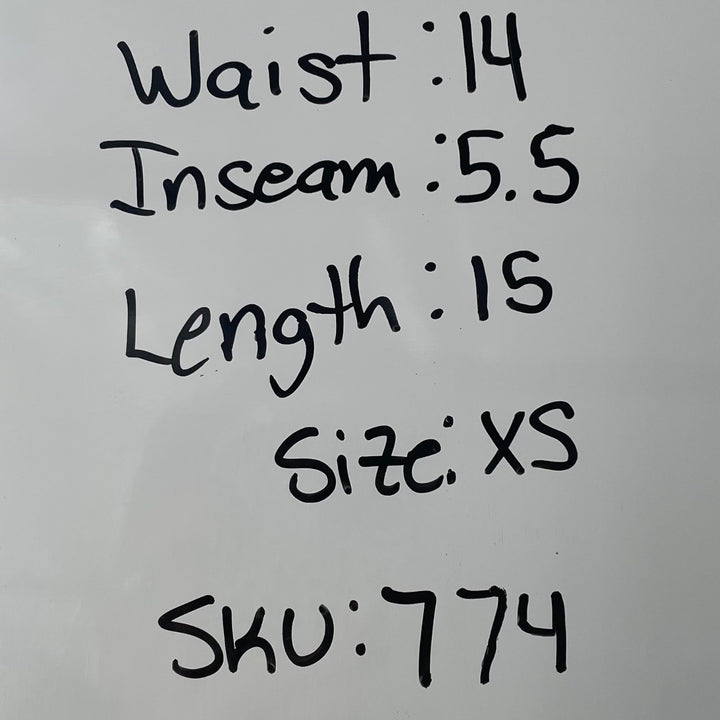 Waist:14
Inseam:5.5
Length:15
Size:XS
SKU:774